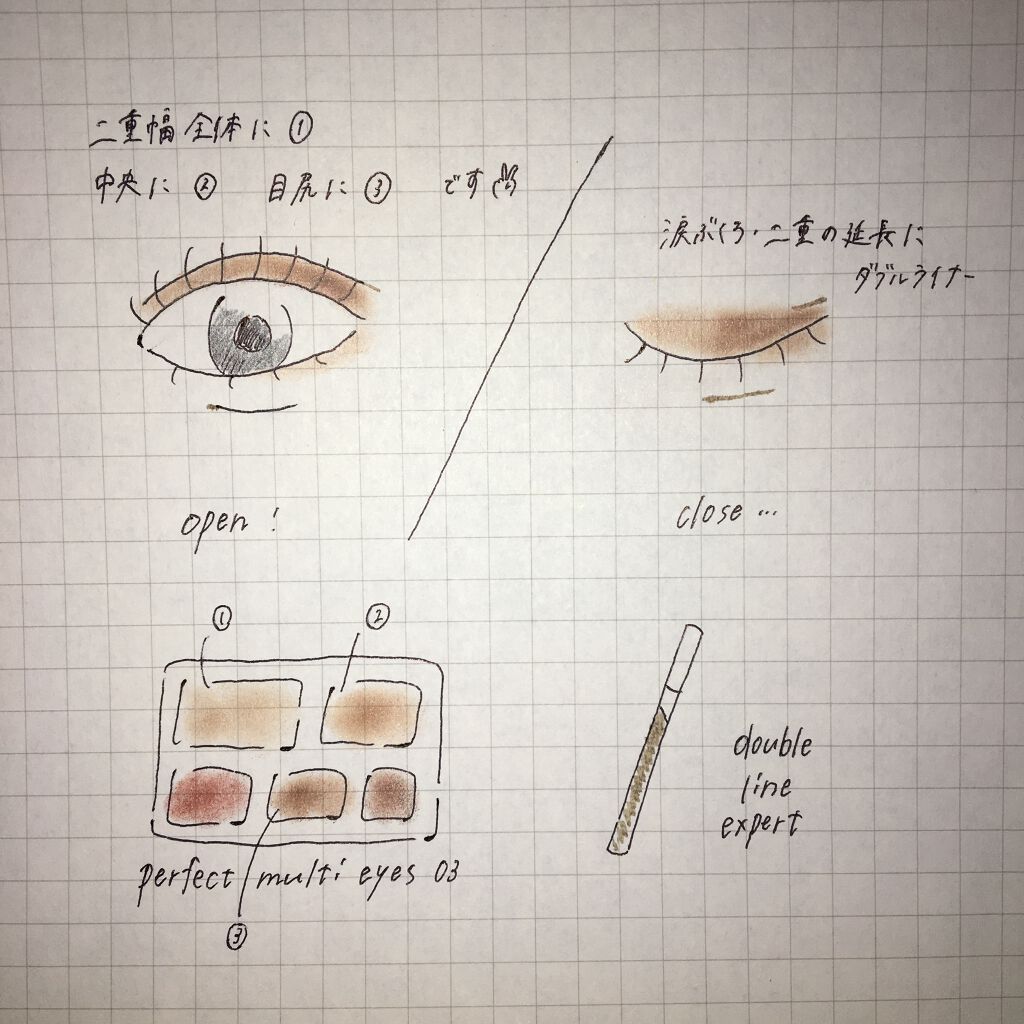 二重幅全体に ①
中央に ② 目尻に ③ です✌
涙ぶくろ・二重の延長に
ダブルライナー
open !
close …
① ②
double
line
expert
perfect multi eyes 03
③